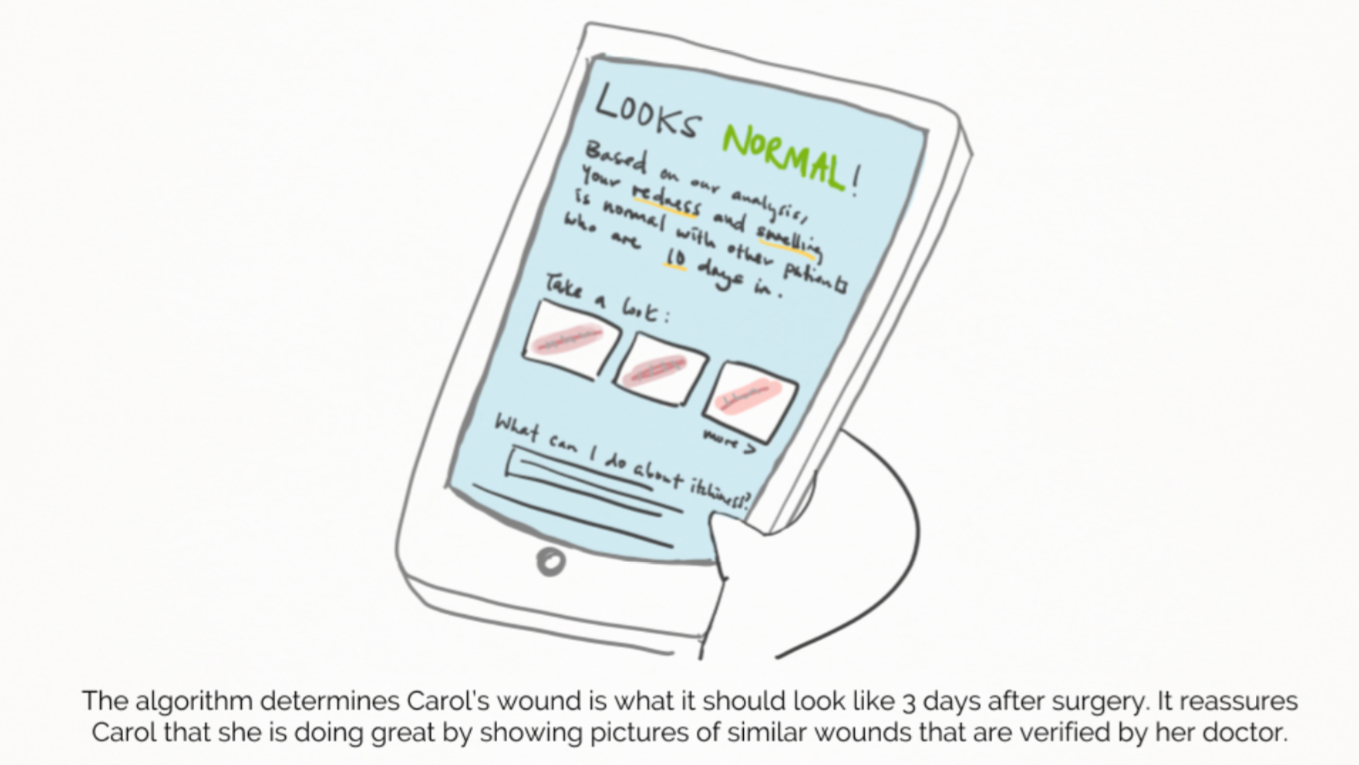 LOOKS NORMAL!
Based on our analysis,
your redness and swelling
is normal with other patients
who are 10 days in.
Take a look:
more >
What can I do about itchiness?
The algorithm determines Carol's wound is what it should look like 3 days after surgery. It reassures
Carol that she is doing great by showing pictures of similar wounds that are verified by her doctor.